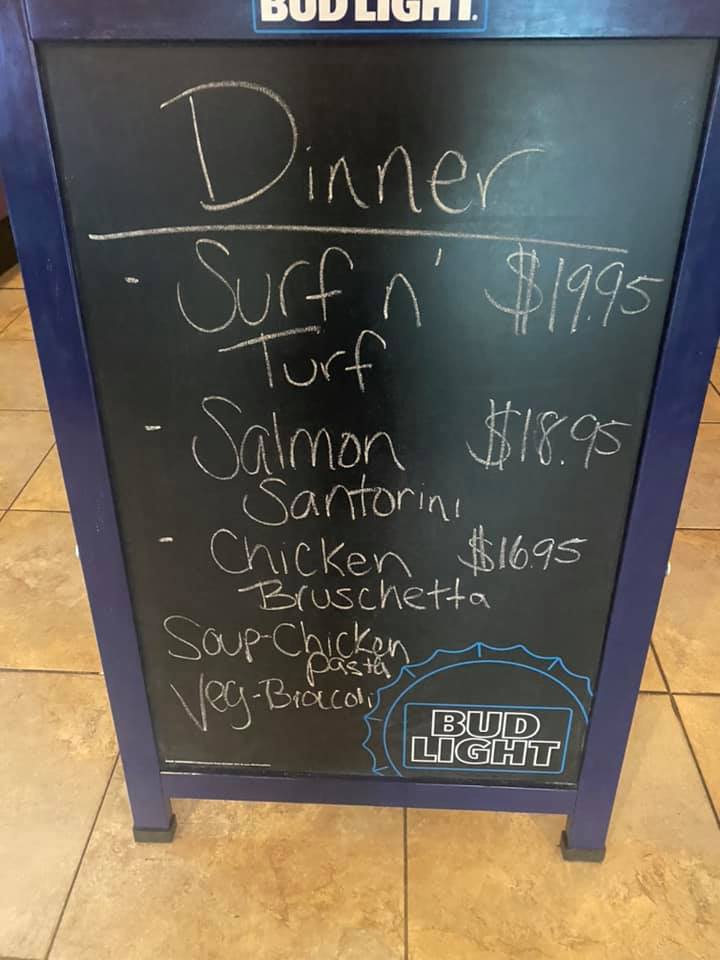 BUD LIGHT.
Dinner
- Surf n' $19.95
Turf
- Salmon $18.95
Santorini
- Chicken $16.95
Bruschetta
Soup-Chicken
pasta
Veg-Broccoli
BUD
LIGHT